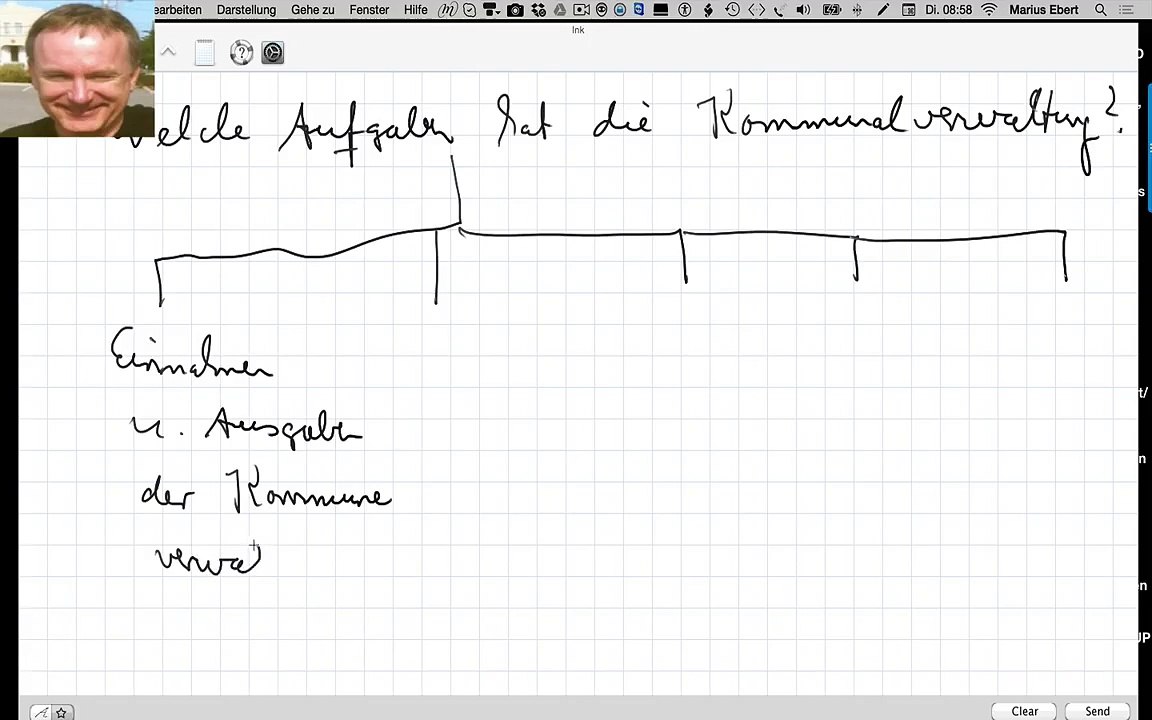 earbeiten Darstellung Gehe zu Fenster Hilfe Di. 08:58 Marius Ebert
Ink
Welche Aufgaben hat die Kommunalverwaltung?
Einnahmen
u. Ausgaben
der Kommune
verwa
s
t/
n
en
JP
Clear Send